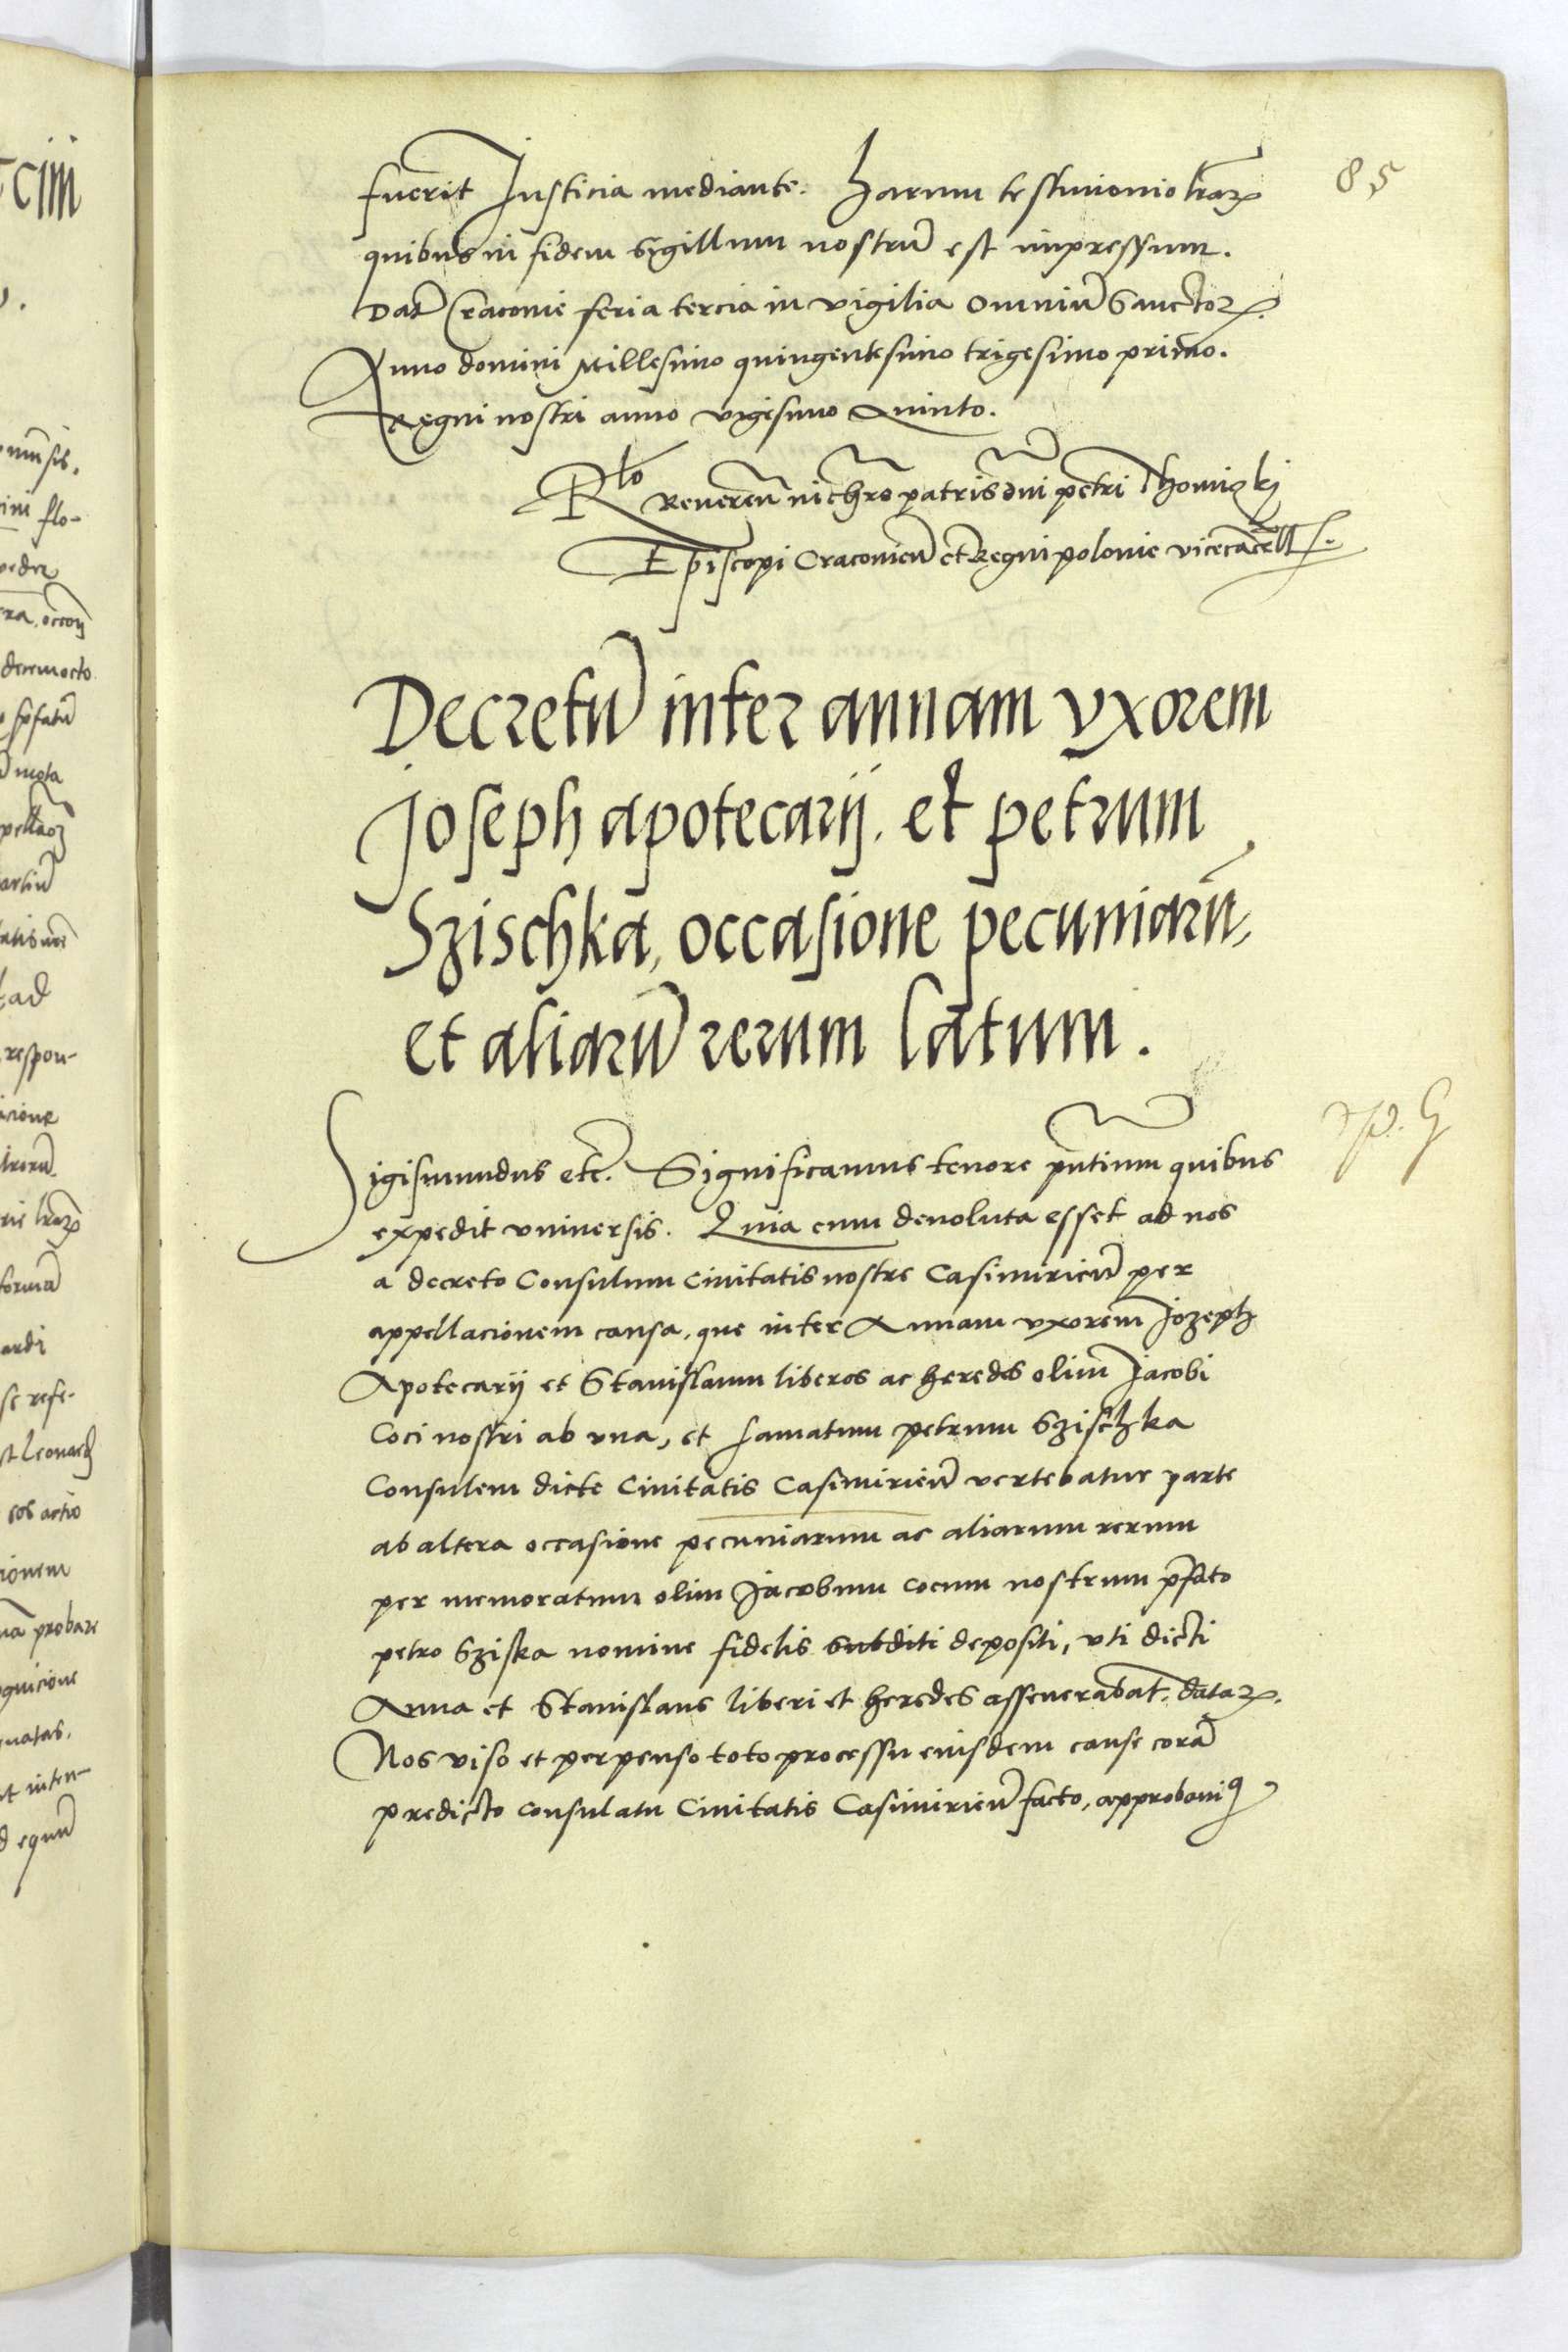 85
fuerit Justicia mediante. Harum testimonio l̃raꝝ
quibus in fidem Sigillum nostrũ est impressum.
Dat̃ Cracovie feria tercia in vigilia Omniũ Sanctoꝝ.
Anno domini Millesimo quingentesimo trigesimo primo.
Regni nostri anno vigesimo Quinto.
R̃lo Reveren̄ in chr̃o patris dñi petri Thomiczkj
Episcopi Cracovien̄ et Regni polonie vicecãcell
Decretũ inter annam vxorem
Joseph apotecarij. et petrum
Szischka, occasione pecuniarũ,
et aliarũ rerum latum.
Sigismundus etc̃. Significamus tenore p̃ntium quibus
expedit vniversis. Quia cum devoluta esset ad nos
a decreto Consulum Civitatis nostre Casimirien̄ per
appellacionem causa, que inter Annam vxorem Jozeph
Apotecarij et Stanislaum liberos ac heredes olim Jacobi
Coci nostri ab vna, et famatum petrum Szischka
Consulem dicte Civitatis Casimirien̄ vertebatur parte
ab altera occasione pecuniarum ac aliarum rerum
per memoratum olim Jacobum cocum nostrum p̃fato
petro Sziska nomine fidelis subditi depositi, vti dicti
Anna et Stanislaus liberi et heredes asseverabat. dataꝝ.
Nos viso et perpenso toto processu eiusdem cause corã
predicto consulatu Civitatis Casimirien̄ facto, approbaviꝯ